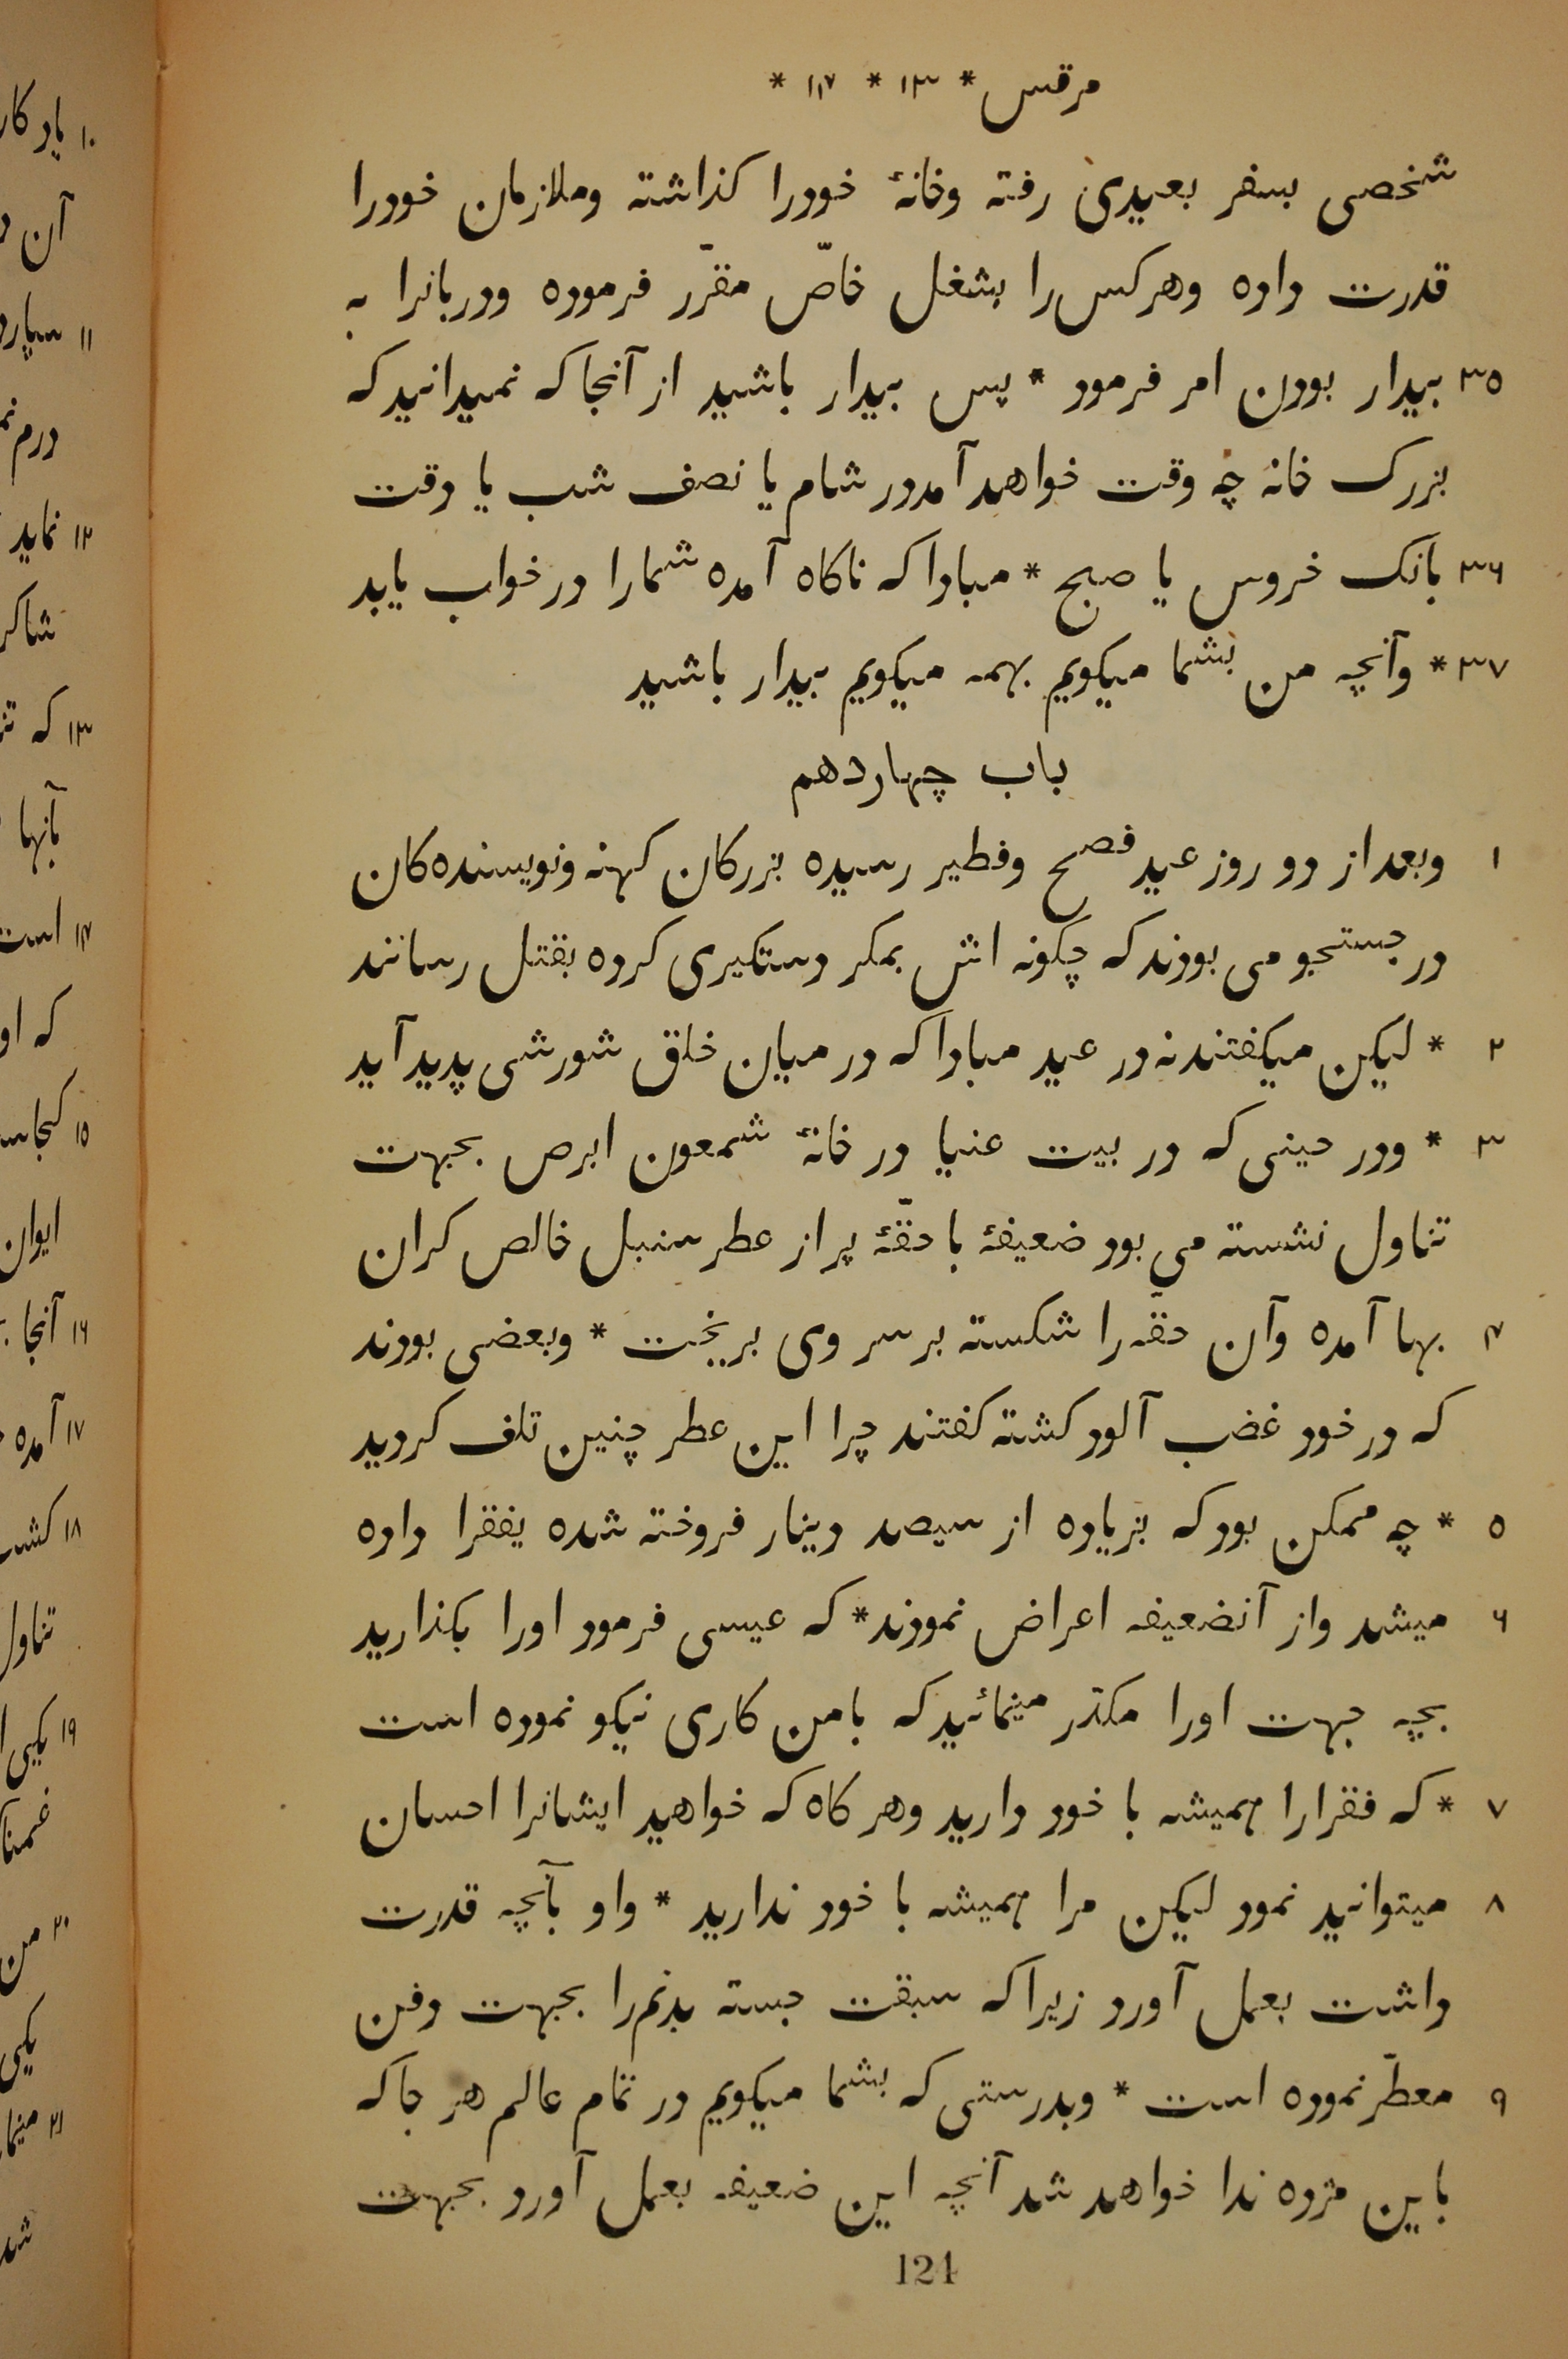 مرقس * ۱۳ * ۱۴ *
شخصی بسفر بعیدی رفته وخانهٔ خودرا کذاشته وملازمان خودرا
قدرت داده وهرکس را بشغل خاصّ مقرّر فرموده ودربانرا به
۳۵ بیدار بودن امر فرمود * پس بیدار باشید از آنجا که نمیدانید که
بزرک خانه چه وقت خواهد آمد در شام یا نصف شب یا وقت
۳۶ بانک خروس یا صبح * مبادا که ناکاه آمده شمارا در خواب یابد
۳۷ * وآنچه من بشما میکویم بهمه میکویم بیدار باشید
باب چهاردهم
۱ وبعد از دو روز عید فصح وفطیر رسیده بزرکان کهنه ونویسنده کان
در جستجو می بودند که چکونه اش بمکر دستکیری کرده بقتل رسانند
۲ * لیکن میکفتند نه در عید مبادا که در میان خلق شورشی پدید آید
۳ * ودر حینی که در بیت عنیا در خانهٔ شمعون ابرص بجهت
تناول نشسته می بود ضعیفهٔ با حقّهٔ پر از عطر سنبل خالص کران
۴ بها آمده وآن حقه را شکسته بر سر وی بریخت * وبعضی بودند
که در خود غضب آلود کشته کفتند چرا این عطر چنین تلف کردید
۵ * چه ممکن بود که بزیاده از سیصد دینار فروخته شده بفقرا داده
۶ میشد واز آنضعیفه اعراض نمودند * که عیسی فرمود اورا بکذارید
بچه جهت اورا مکدّر مینمائید که بامن کاری نیکو نموده است
۷ * که فقرارا همیشه با خود دارید وهر کاه که خواهید ایشانرا احسان
۸ میتوانید نمود لیکن مرا همیشه با خود ندارید * واو بآنچه قدرت
داشت بعمل آورد زیرا که سبقت جسته بدنم را بجهت دفن
۹ معطّر نموده است * وبدرستی که بشما میکویم در تمام عالم هر جا که
باین مژده ندا خواهد شد آنچه این ضعیفه بعمل آورد بجهت
124